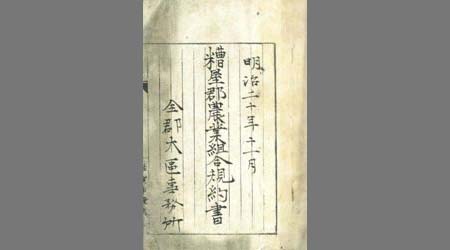 明治二十年十一月
糟屋郡農業組合規約書
仝郡大區事務所